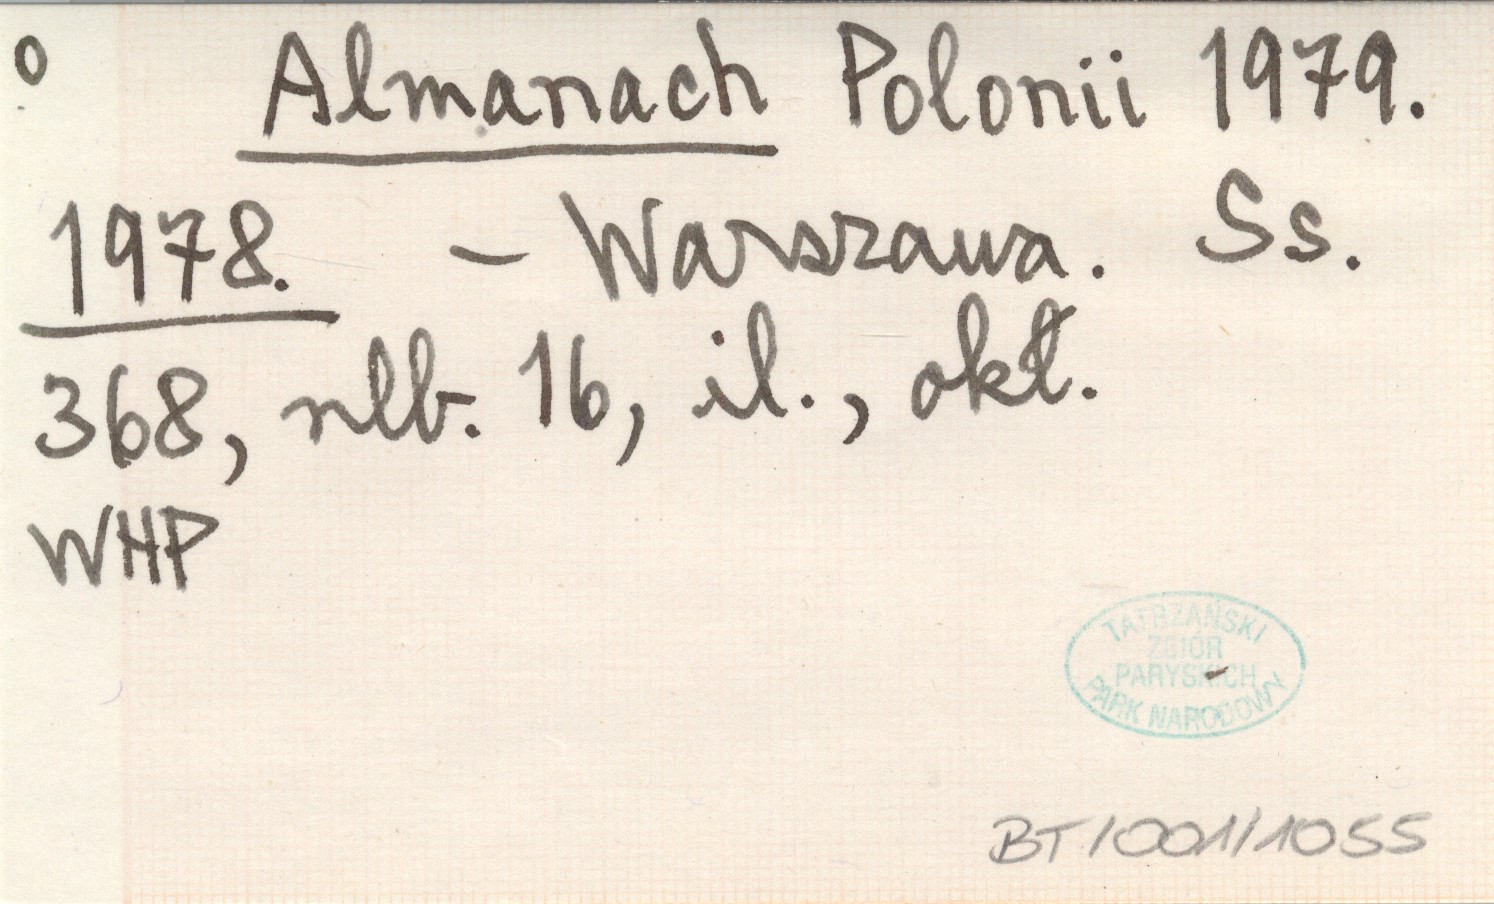 o Almanach Polonii 1979.
1978. – Warszawa. Ss.
368, nlb. 16, il., okł.
WHP
TATRZAŃSKI
ZBIÓR
PARYSKICH
PARK NARODOWY
BT/001/1055